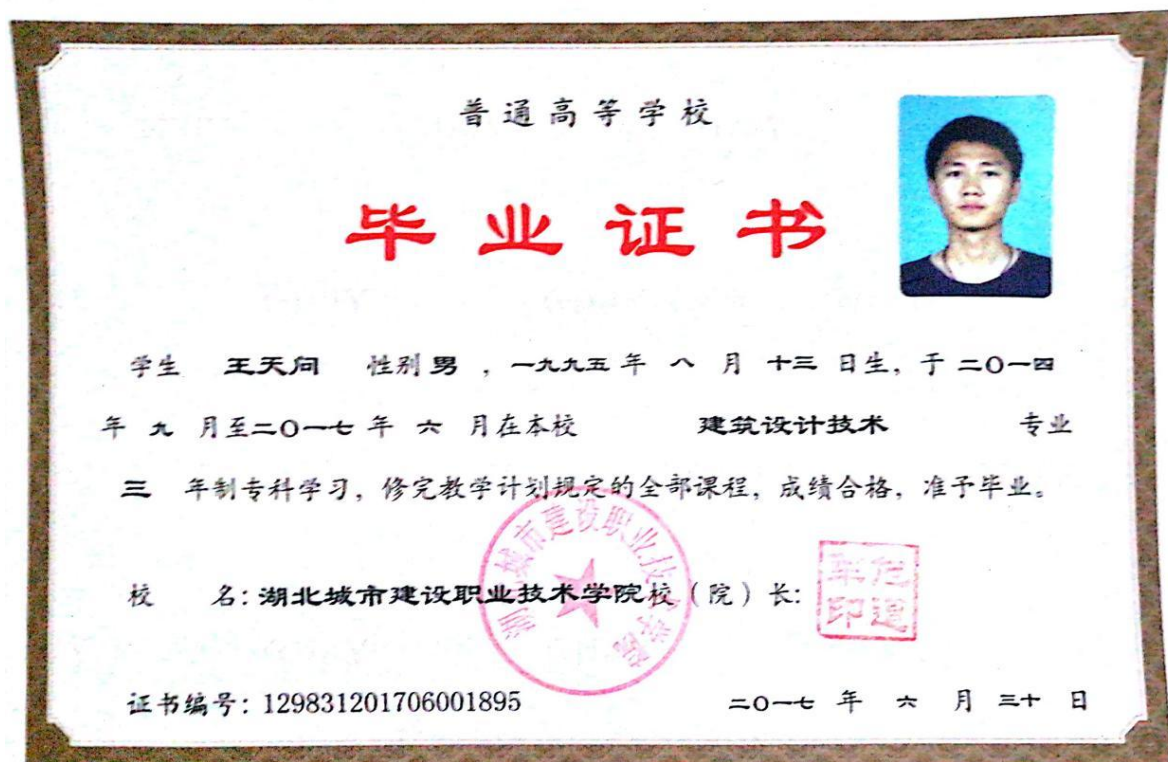 普通高等学校
毕业证书
学生 王天问 性别 男 ，一九九五 年 八 月 十三 日生，于 二〇一四
年 九 月至二〇一七 年 六 月在本校 建筑设计技术 专业
三 年制专科学习，修完教学计划规定的全部课程，成绩合格，准予毕业。
校 名：湖北城市建设职业技术学院校（院）长：
证书编号：129831201706001895 二〇一七 年 六 月 三十 日